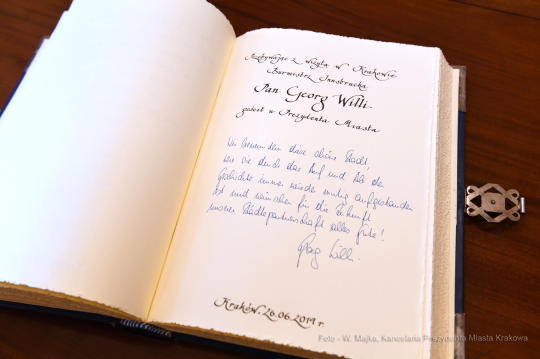 Przebywając z wizytą w Krakowie
Burmistrz Innsbrucka
Pan Georg Willi
gościł u Prezydenta Miasta
Wir bewundern diese schöne Stadt,
wie sie durch das Auf und Ab der
Geschichte immer wieder mutig aufgestanden
ist und wünschen für die Zukunft
unserer Städtepartnerschaft alles Gute!
Georg Willi
Kraków, 26.06.2019 r.
Foto - W. Majka, Kancelaria Prezydenta Miasta Krakowa